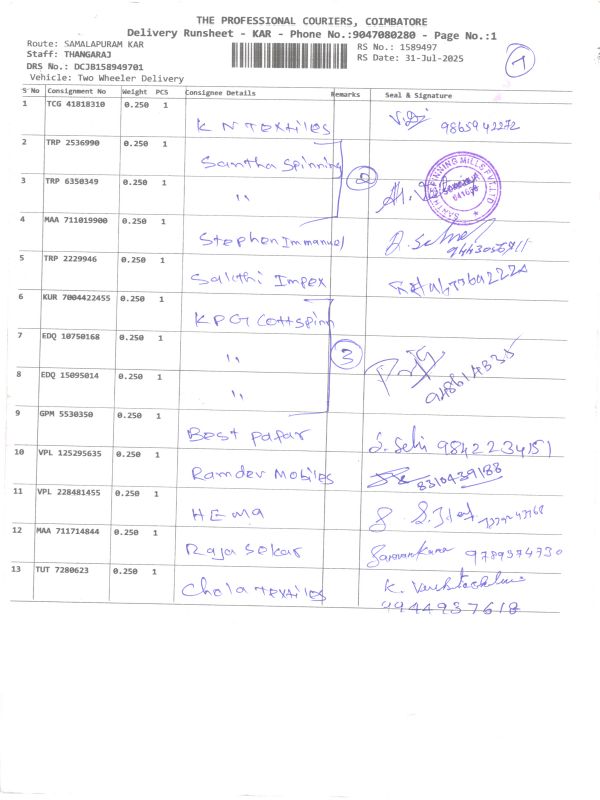 THE PROFESSIONAL COURIERS, COIMBATORE
Delivery Runsheet - KAR - Phone No.:9047080280 - Page No.:1
Route: SAMALAPURAM KAR
Staff: THANGARAJ
DRS No.: DCJB158949701
Vehicle: Two Wheeler Delivery
RS No.: 1589497
RS Date: 31-Jul-2025
1
S No Consignment No Weight PCS Consignee Details Remarks Seal & Signature
1 TCG 41818310 0.250 1 K N TEXtiles 9865942272
2 TRP 2536990 0.250 1 Santha Spinning
3 TRP 6350349 0.250 1 " 2
4 MAA 711019900 0.250 1 Stephen Immanuel
5 TRP 2229946 0.250 1 Sakthi Impex
6 KUR 7004422455 0.250 1 KPG Cottspinn
7 EDQ 10750168 0.250 1 " 3
8 EDQ 15095014 0.250 1 "
9 GPM 5530350 0.250 1 Best pafar 9842234151
10 VPL 125295635 0.250 1 Ramdev Mobiles 8310439188
11 VPL 228481455 0.250 1 HEMA
12 MAA 711714844 0.250 1 Raja Sekar Saravan Kumar 9789374730
13 TUT 7280623 0.250 1 Chola TEXtiles K.
9944937618